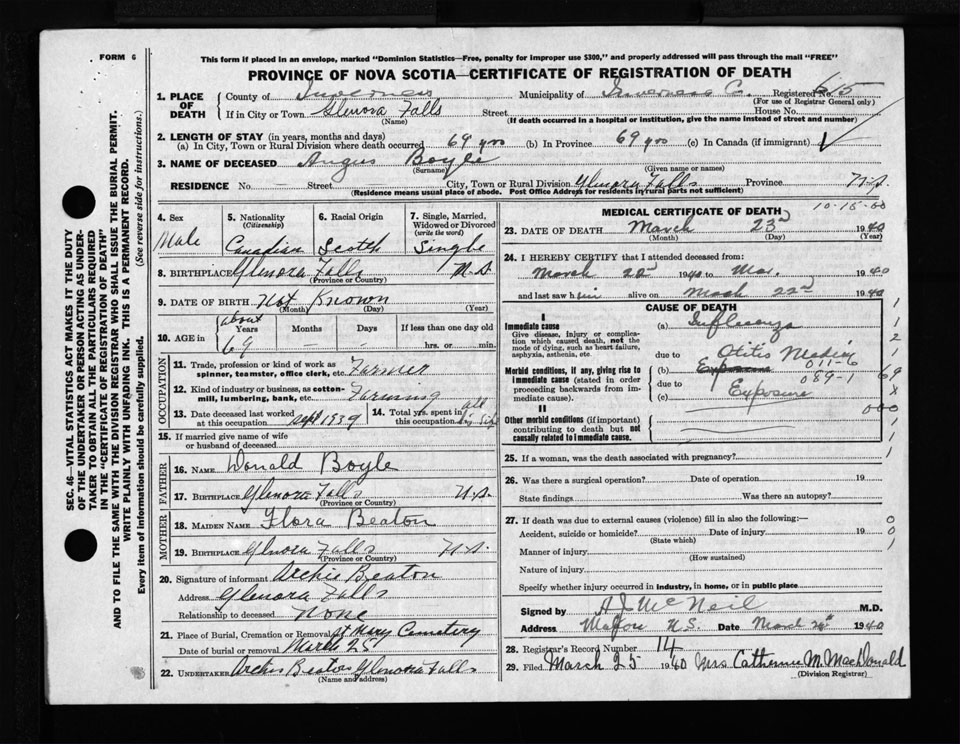 FORM 6
This form if placed in an envelope, marked "Dominion Statistics—Free, penalty for improper use $300," and properly addressed will pass through the mail "FREE"
PROVINCE OF NOVA SCOTIA—CERTIFICATE OF REGISTRATION OF DEATH
1. PLACE OF DEATH
County of Inverness Municipality of Inverness Co. Registered No. 615
(For use of Registrar General only)
If in City or Town Glenora Falls Street House No.
(Name) (If death occurred in a hospital or institution, give the name instead of street and number)
2. LENGTH OF STAY (in years, months and days)
(a) In City, Town or Rural Division where death occurred 69 yrs (b) In Province 69 yrs (c) In Canada (if immigrant)
3. NAME OF DECEASED Angus Boyle
(Surname) (Given name or names)
RESIDENCE No. — Street — City, Town or Rural Division Glenora Falls Province N.S.
(Residence means usual place of abode. Post Office Address for residents in rural parts not sufficient)
4. Sex Male
5. Nationality (Citizenship) Canadian
6. Racial Origin Scotch
7. Single, Married, Widowed or Divorced (write the word) Single
8. BIRTHPLACE Glenora Falls N.S.
(Province or Country)
9. DATE OF BIRTH Not Known
(Month) (Day) (Year)
10. AGE in about Years Months Days If less than one day old
69 — — hrs. or min.
OCCUPATION
11. Trade, profession or kind of work as spinner, teamster, office clerk, etc. Farmer
12. Kind of industry or business, as cotton-mill, lumbering, bank, etc. Farming
13. Date deceased last worked at this occupation Sept 1939
14. Total yrs. spent in this occupation all his life
15. If married give name of wife or husband of deceased
FATHER
16. NAME Donald Boyle
17. BIRTHPLACE Glenora Falls N.S.
(Province or Country)
MOTHER
18. MAIDEN NAME Flora Beaton
19. BIRTHPLACE Glenora Falls N.S.
(Province or Country)
20. Signature of informant Archie Beaton
Address Glenora Falls
Relationship to deceased None
21. Place of Burial, Cremation or Removal St Mary Cemetery
Date of burial or removal March 25
22. UNDERTAKER Archie Beaton Glenora Falls
(Name and address)
MEDICAL CERTIFICATE OF DEATH 10-15-60
23. DATE OF DEATH March 23d 1940
(Month) (Day) (Year)
24. I HEREBY CERTIFY that I attended deceased from:
March 22d 1940 to Mar. 1940
and last saw him alive on March 22d 1940
CAUSE OF DEATH
I
Immediate cause
Give disease, injury or complication which caused death, not the mode of dying, such as heart failure, asphyxia, asthenia, etc.
(a) Influenza
due to Otitis Media
Morbid conditions, if any, giving rise to immediate cause (stated in order proceeding backwards from immediate cause).
(b) Exposure 011-6
due to 089-1
(c) Exposure
II
Other morbid conditions (if important) contributing to death but not causally related to immediate cause.
25. If a woman, was the death associated with pregnancy?
26. Was there a surgical operation? Date of operation 19
State findings Was there an autopsy?
27. If death was due to external causes (violence) fill in also the following:—
Accident, suicide or homicide? Date of injury 19
(State which)
Manner of injury
(How sustained)
Nature of injury
Specify whether injury occurred in industry, in home, or in public place
Signed by A J McNeil M.D.
Address Mabou N.S. Date March 1940
28. Registrar's Record Number 14
29. Filed March 25 1940 Mrs Catherine M. MacDonald
(Division Registrar)
SEC. 46—VITAL STATISTICS ACT MAKES IT THE DUTY OF THE UNDERTAKER OR PERSON ACTING AS UNDERTAKER TO OBTAIN ALL THE PARTICULARS REQUIRED IN THE "CERTIFICATE OF REGISTRATION OF DEATH" AND TO FILE THE SAME WITH THE DIVISION REGISTRAR WHO SHALL ISSUE THE BURIAL PERMIT.
WRITE PLAINLY WITH UNFADING INK. THIS IS A PERMANENT RECORD.
Every item of information should be carefully supplied. (See reverse side for instructions.)